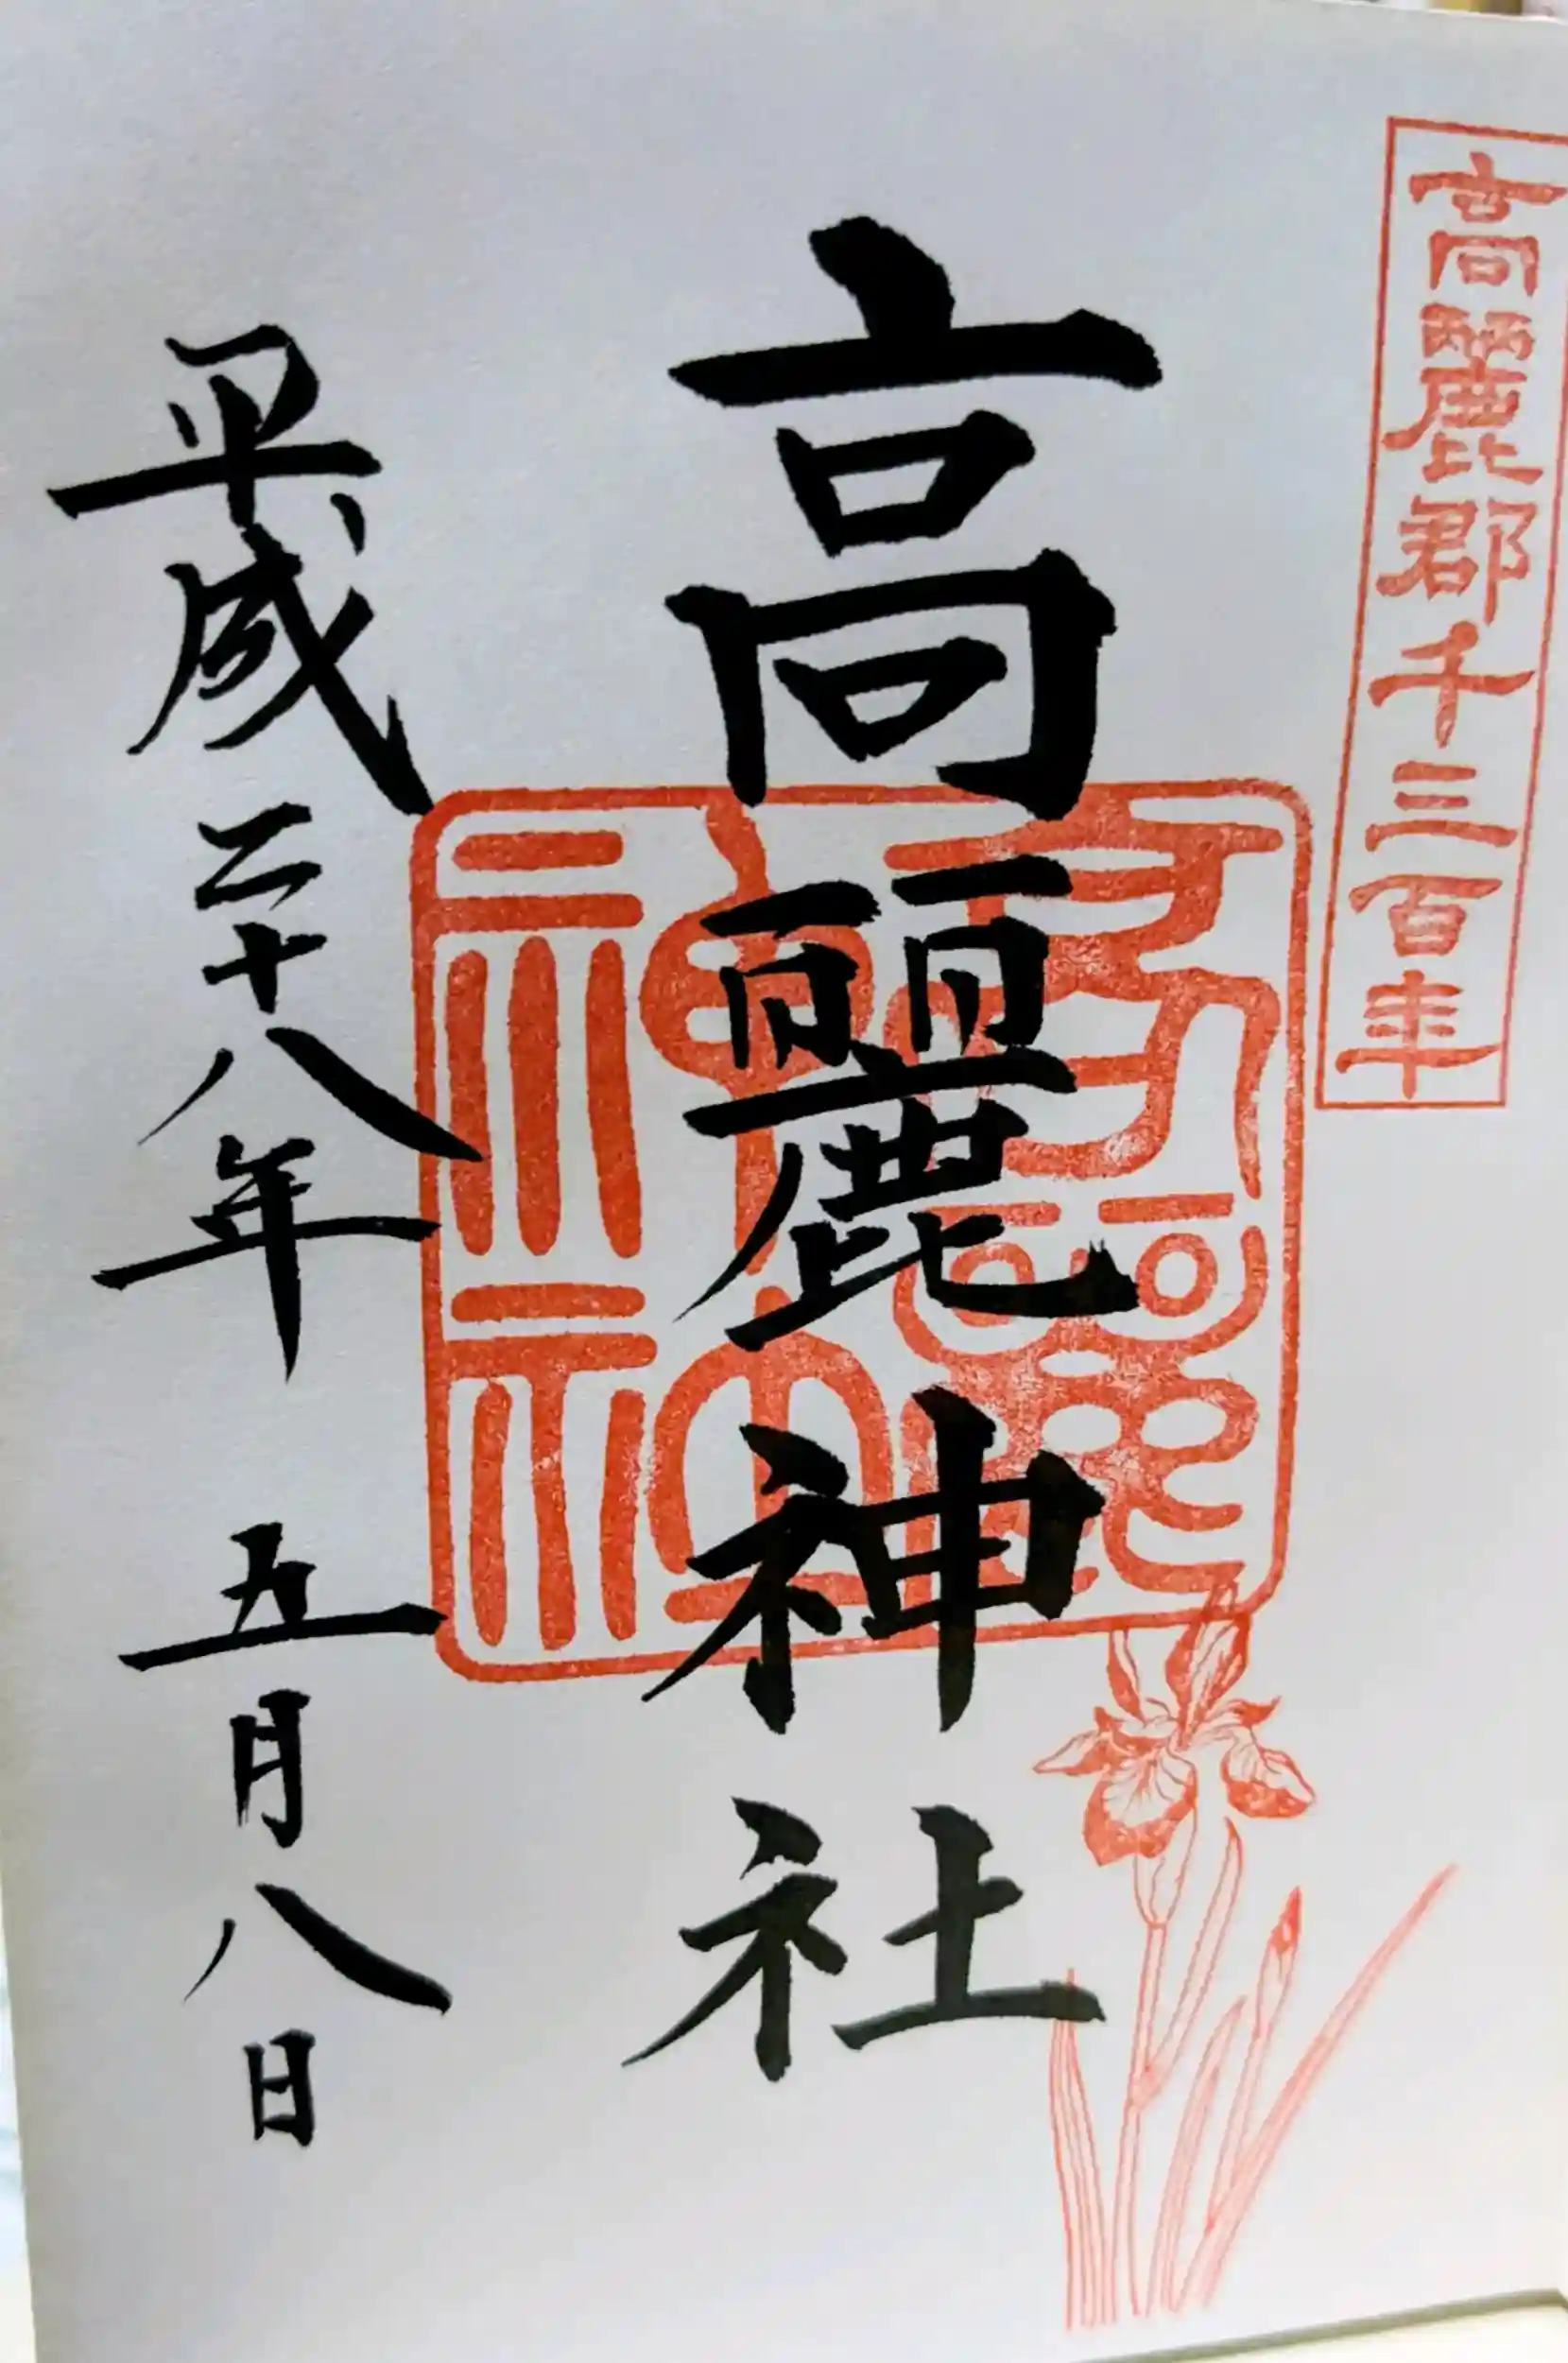 高麗郡千三百年
高麗神社
平成二十八年 五月八日